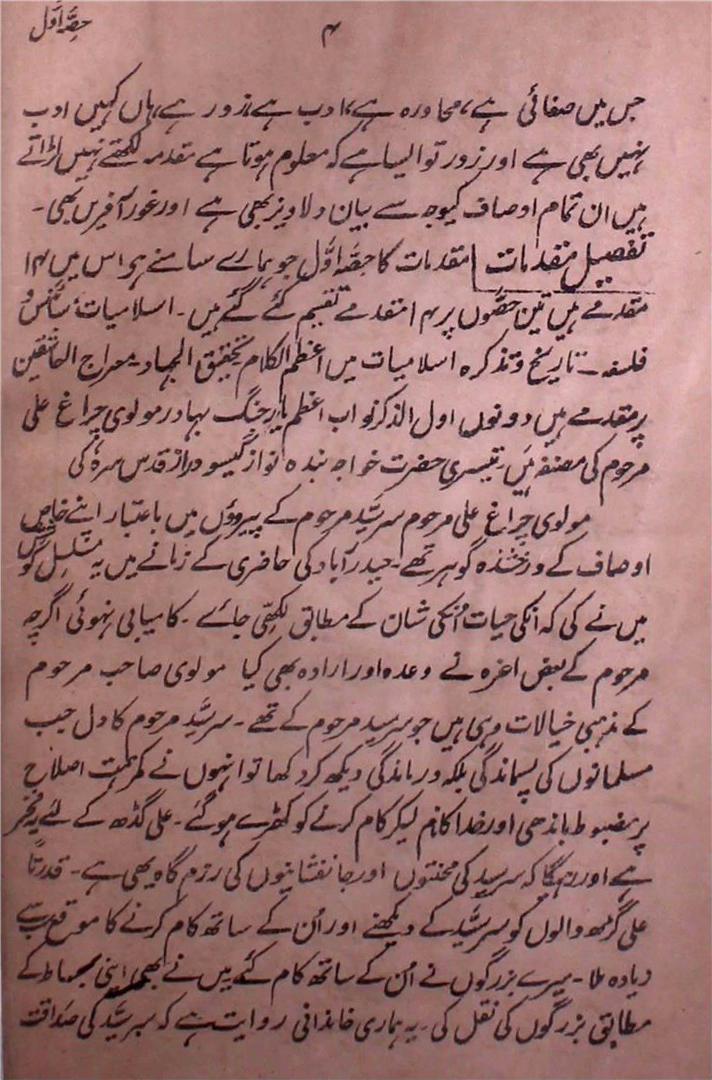 حصّہ اوّل
۴
جس میں صفائی ہے، محاورہ ہے، ادب ہے، زور ہے، ہاں کہیں ادب
نہیں بھی ہے اور زور تو ایسا ہے کہ معلوم ہوتا ہے مقدمہ لکھتے نہیں لڑاتے
ہیں ان تمام اوصاف کیوجہ سے بیان دلاویز بھی ہے اور غور آفریں بھی۔
تفصیل مقدمات مقدمات کا حصّہ اوّل جو ہمارے سامنے ہر اس میں ۱۴
مقدمے ہیں تین حصّوں پر ۱۴ مقدمے تقسیم کئے گئے ہیں۔ اسلامیات، سائنس و
فلسفہ۔ تاریخ و تذکرہ اسلامیات میں اعظم الکلام تحقیق الجہاد۔ معراج العاشقین
پر مقدمے ہیں دونوں اول الذکر نواب اعظم یار جنگ بہادر مولوی چراغ علی
مرحوم کی مصنفہ ہیں، تیسری حضرت خواجہ بندہ نواز گیسو دراز قدس سرہ کی
مولوی چراغ علی مرحوم سرسیّد مرحوم کے پیروؤں میں باعتبار اپنے خاص
اوصاف کے درخشندہ گوہر تھے۔ حیدرآباد کی حاضری کے زمانے میں یہ مسلسل کوشش
میں نے کی کہ انکی حیات اُنکی شان کے مطابق لکھّی جائے۔ کامیابی نہوئی اگرچہ
مرحوم کے بعض اعزہ نے وعدہ اور ارادہ بھی کیا مولوی صاحب مرحوم
کے مذہبی خیالات وہی ہیں جو سرسید مرحوم کے تھے۔ سرسیّد مرحوم کا دل جب
مسلمانوں کی پسماندگی بلکہ درماندگی دیکھ کر دکھا تو انہوں نے کمر ہمت اصلاح
پر مضبوط باندھی اور خدا کا نام لیکر کام کرنے کو کھڑے ہو گئے۔ علی گڈھ کے لئے یہ فخر
ہے اور رہیگا کہ سرسید کی محنتوں اور جانفشانیوں کی رزم گاہ یہی ہے۔ قدرتاً
علی گڑھ والوں کو سرسیّد کے دیکھنے اور اُن کے ساتھ کام کرنے کا موقع سب سے
زیادہ ملا۔ میرے بزرگوں نے اُن کے ساتھ کام کئے میں نے بھی اپنی بساط کے
مطابق بزرگوں کی نقل کی۔ یہ ہماری خاندانی روایت ہے کہ سرسیّد کی صداقت